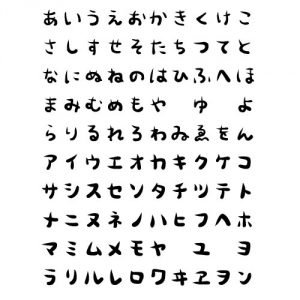 あいうえおかきくけこ
さしすせそたちつてと
なにぬねのはひふへほ
まみむめもや ゆ よ
らりるれろわゐゑをん
アイウエオカキクケコ
サシスセソタチツテト
ナニヌネノハヒフヘホ
マミムメモヤ ユ ヨ
ラリルレロワヰヱヲン